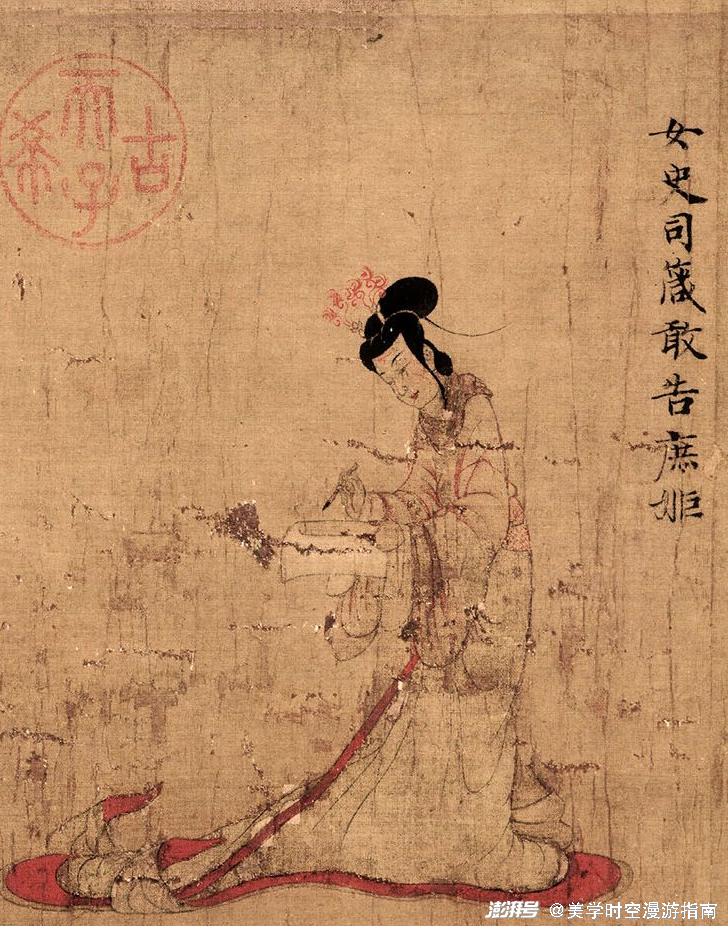 女史司箴敢告庶姬
古希天子
澎湃号 @美学时空漫游指南